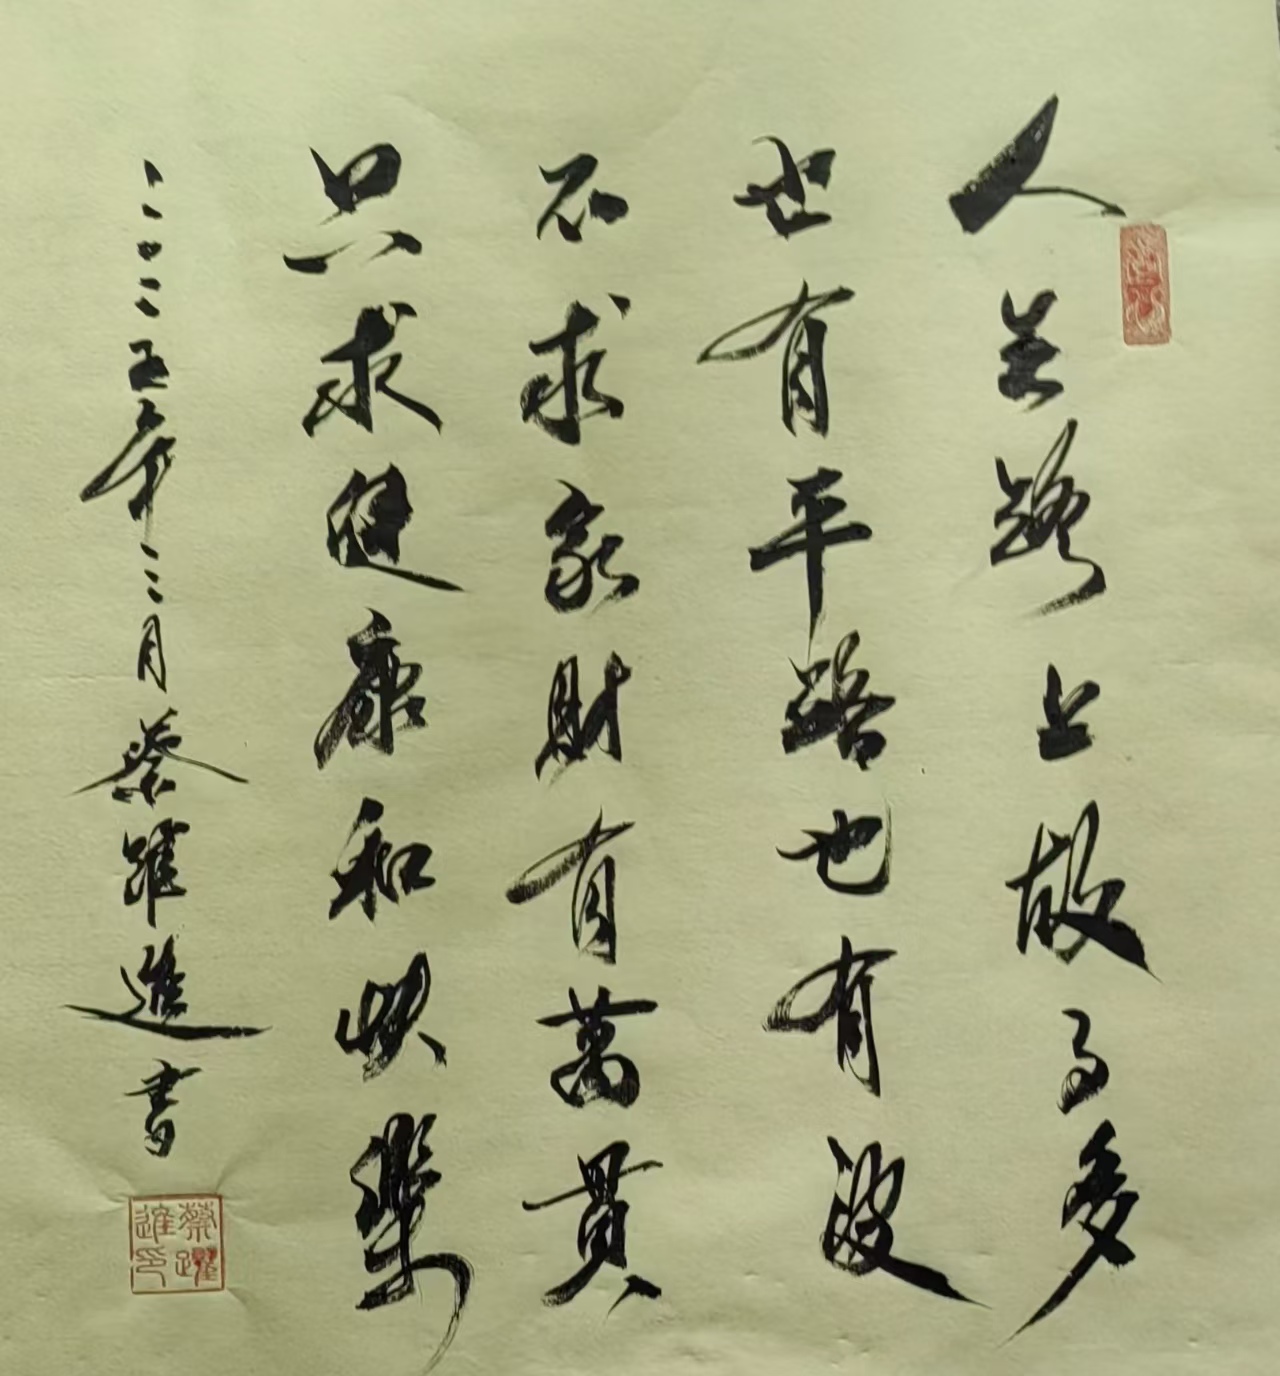 人生路上故事多
也有平路也有波
不求家財有萬貫
只求健康和快樂
二〇二五年三月蔡躍進書
蔡躍進印